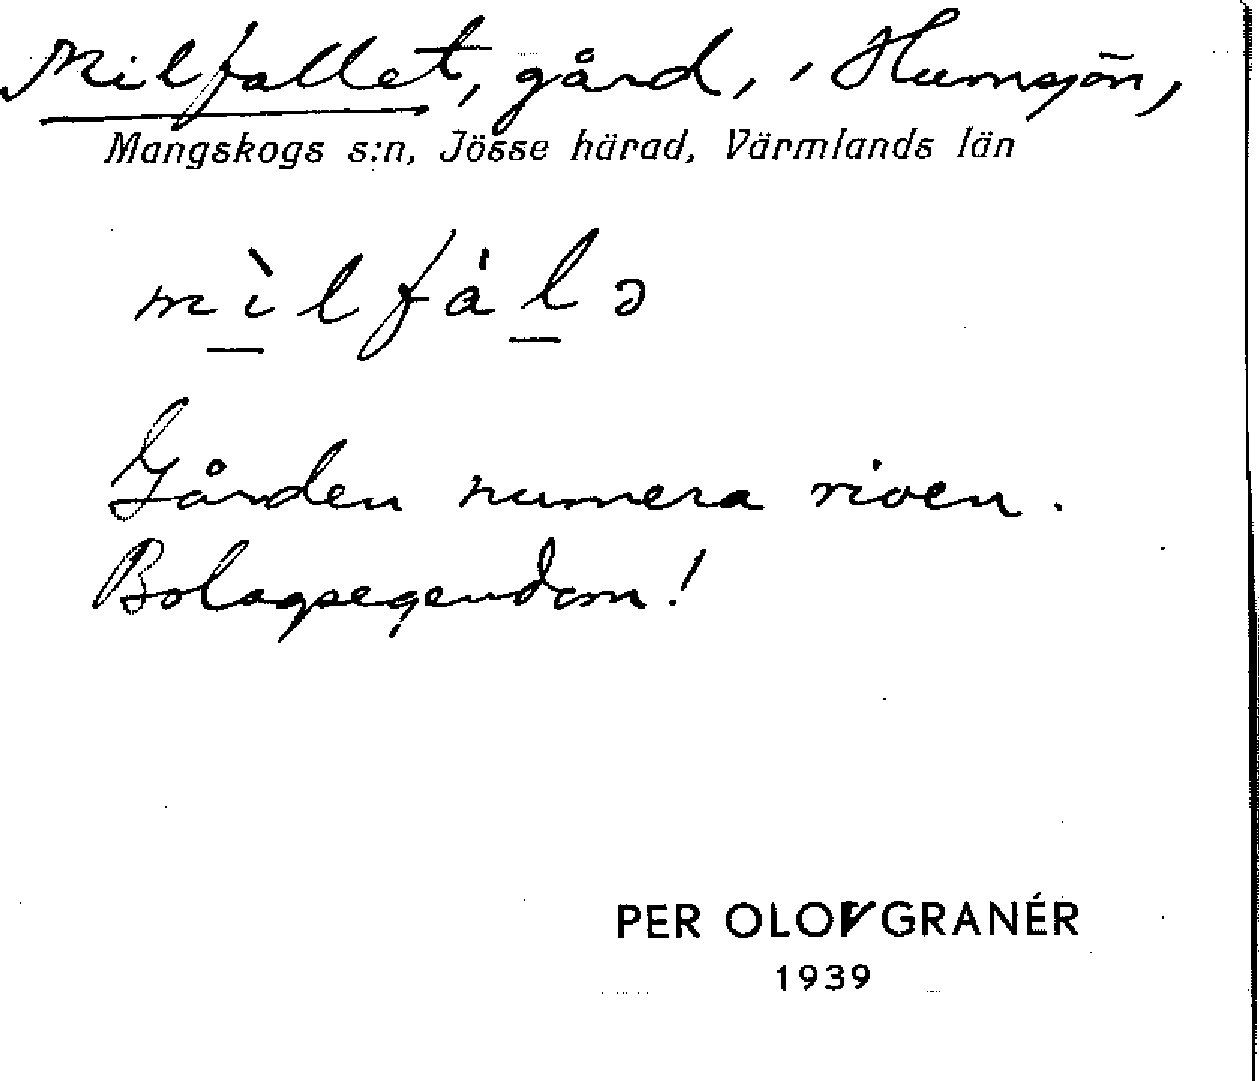 Milfallet, gård, i Humsjön,
Mangskogs s:n, Jösse härad, Värmlands län
mìlfálə
Gården numera riven.
Bolagsegendom!
PER OLOV GRANÉR
1939